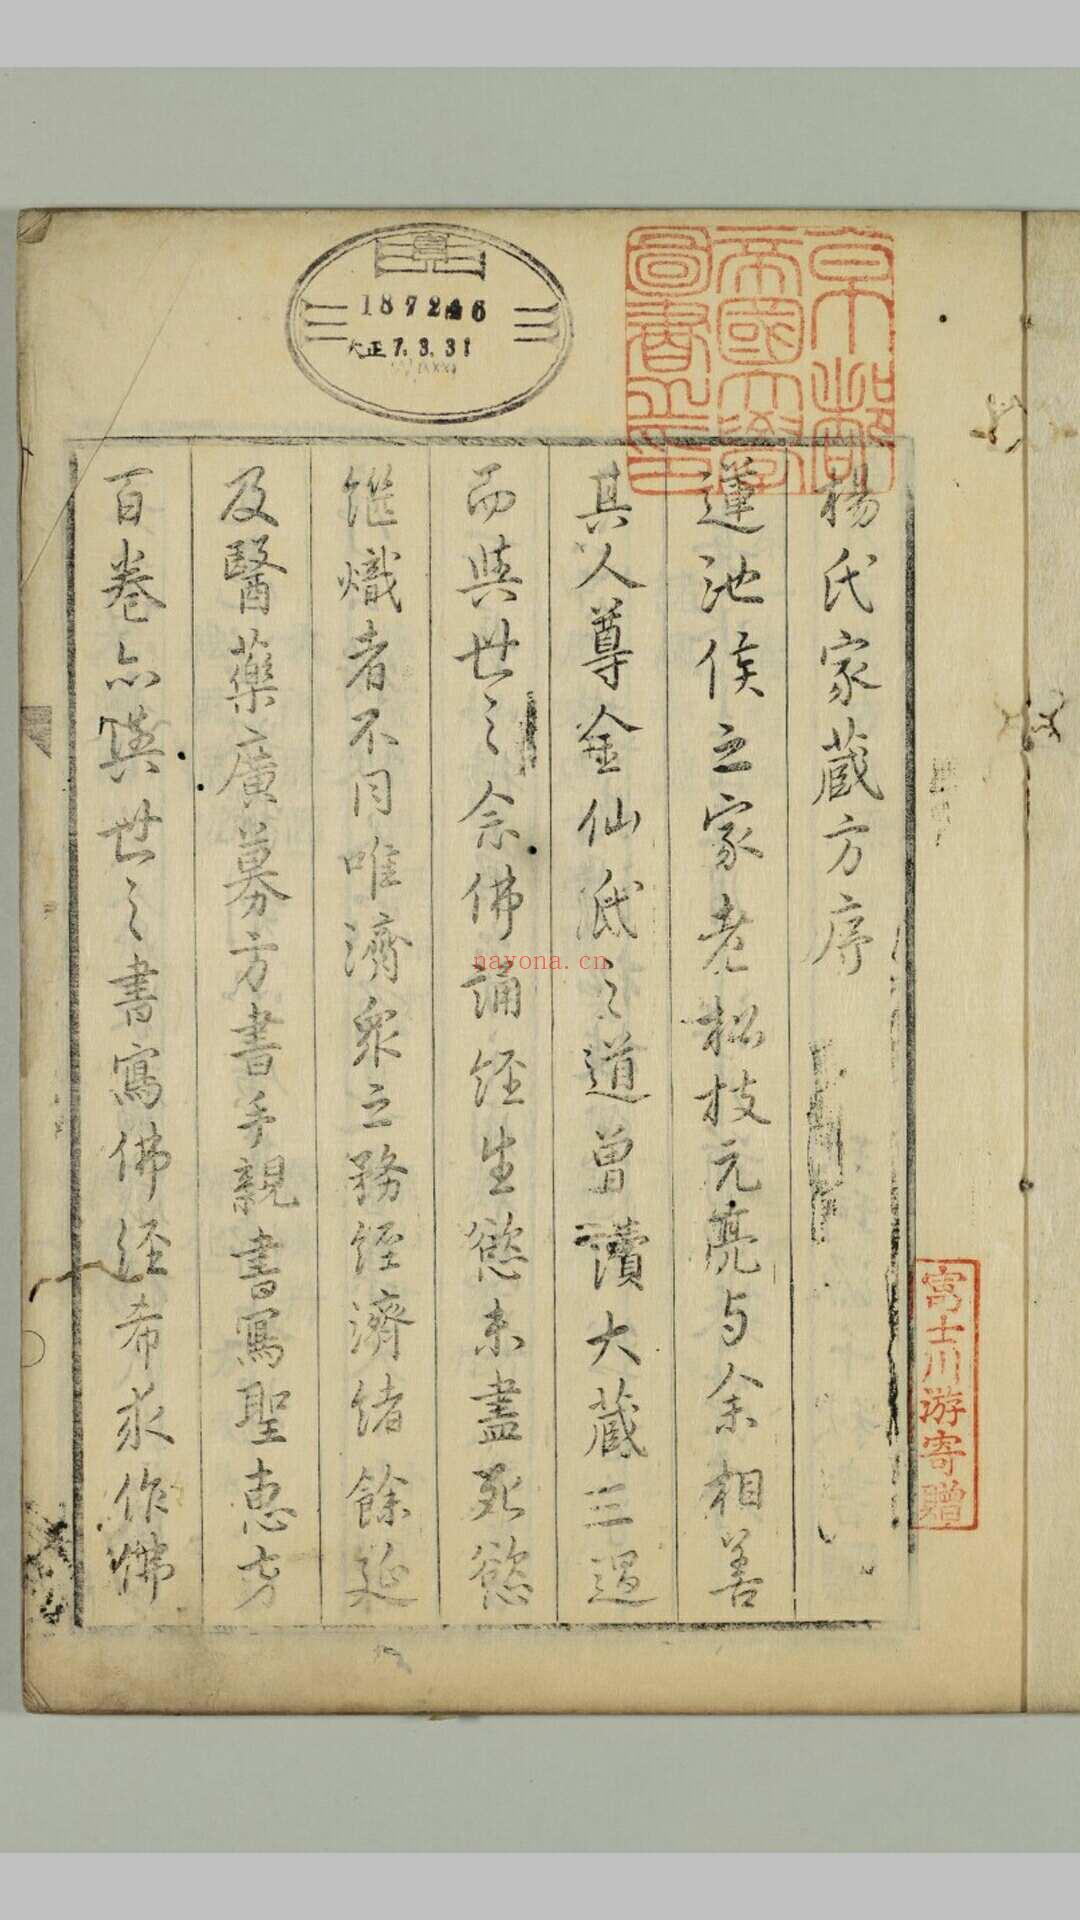 京都
帝國大學
圖書之印
187246
大正7.3.31
楊氏家蔵方序
蓮池侯之家老松枝元亮与余相善
其人尊金仙氏之道曽讀大蔵三過
而與世之念佛誦経生慾未盡死慾
継熾者不同唯濟衆之務経濟緒餘延
及醫藥廣募方書手親書寫聖惠方
百巻亦與世之書寫佛経希求作佛
富士川游寄贈
nayona.cn